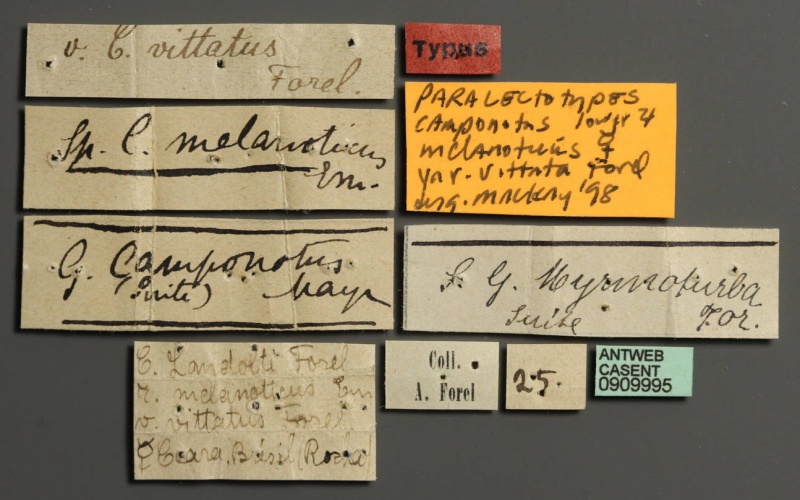 v. C. vittatus
Forel.
Typus
PARALECTOTYPES
CAMPONOTUS lower 4
melanoticus ☿
var. vittata Forel
desg. MACKAY '98
Sp. C. melanoticus
Em.
G. Camponotus
(Suite) Mayr
S G. Myrmoturba
Suite For.
C. Landolti Forel
r. melanoticus Em
v. vittatus Forel
☿ Ceara, Brésil (Rocha)
Coll.
A. Forel
25.
ANTWEB
CASENT
0909995